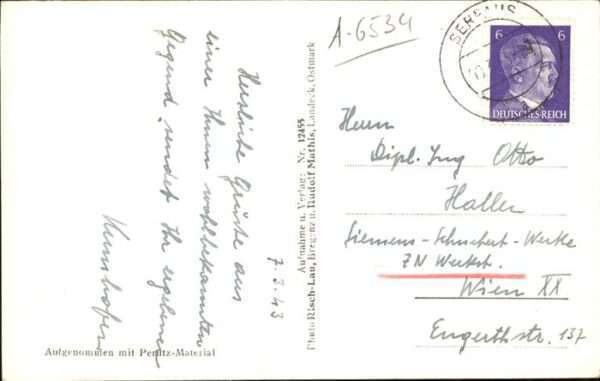 A-6534
SERFAUS
6 6
DEUTSCHES REICH
7.3.43
Herzliche Grüße aus
einer Ihnen wohlbekannten
Gegend sendet Ihr ergebener
Aufnahme u. Verlag: Nr. 12455
Photo Risch-Lau, Bregenz u. Rudolf Mathis, Landeck, Ostmark
Herrn
Dipl. Ing Otto
Haller
Siemens-Schuckert-Werke
ZN Werkst.
Wien XX
Engerthstr. 137
Aufgenommen mit Perutz-Material